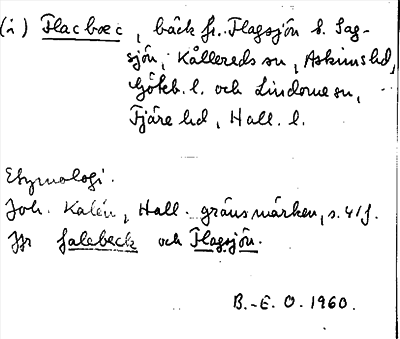 (i) Flacbæc, bäck fr. Flagsjön t. Sag-
sjön, Kållereds sn, Askims hd,
Göteb. l. och Lindome sn,
Fjäre hd, Hall. l.
Etymologi.
Joh. Kalén, Hall. gränsmärken, s. 41 f.
Jfr falebeck och Flagsjön.
B.-E. O. 1960.